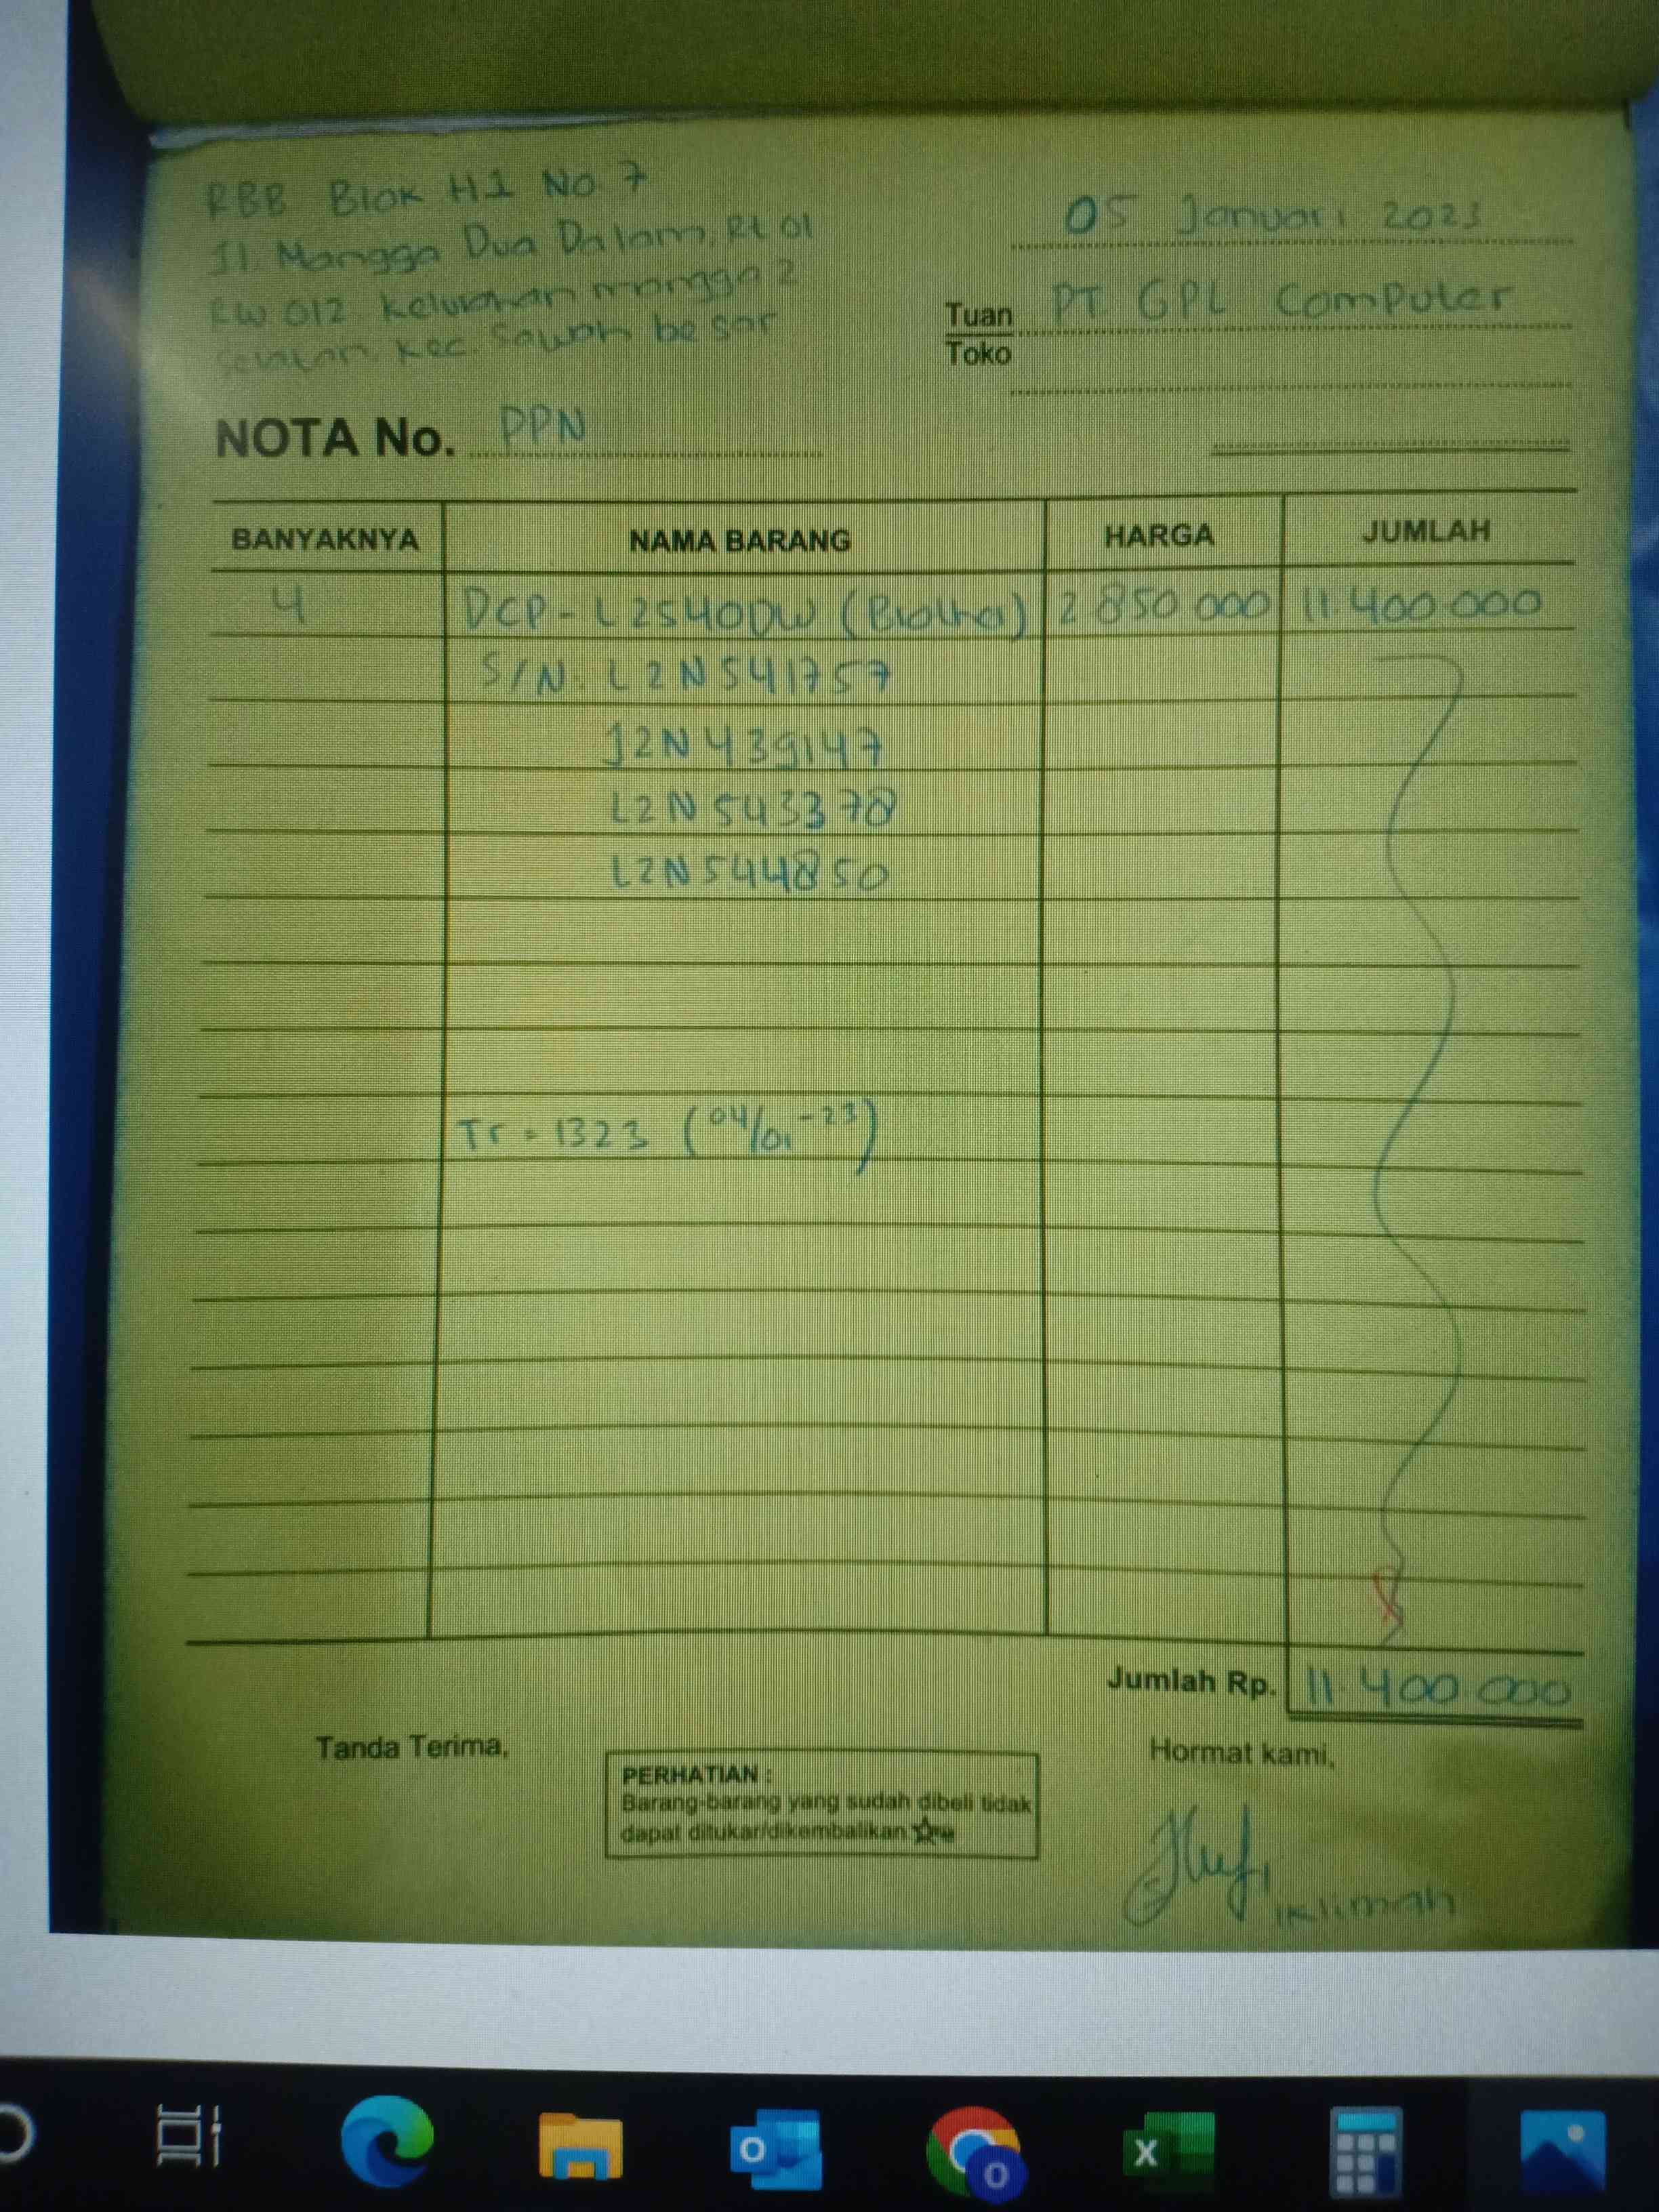 RBB Blok H1 No 7
Jl. Mangga Dua Dalam, Rt 01
RW 012 Kelurahan mangga 2
Selatan. Kec. Sawah besar
05 Januari 2023
Tuan PT. GPL Computer
Toko
NOTA No. PPN
BANYAKNYA NAMA BARANG HARGA JUMLAH
4 DCP-L2540DW (Brother) 2 850 000 11.400.000
S/N: L2N541757
J2N439147
L2N543378
L2N544850
Tr = 1323 (04/01-23)
Jumlah Rp. 11.400 000
Tanda Terima,
Hormat kami,
PERHATIAN :
Barang-barang yang sudah dibeli tidak
dapat ditukar/dikembalikan
iklimah